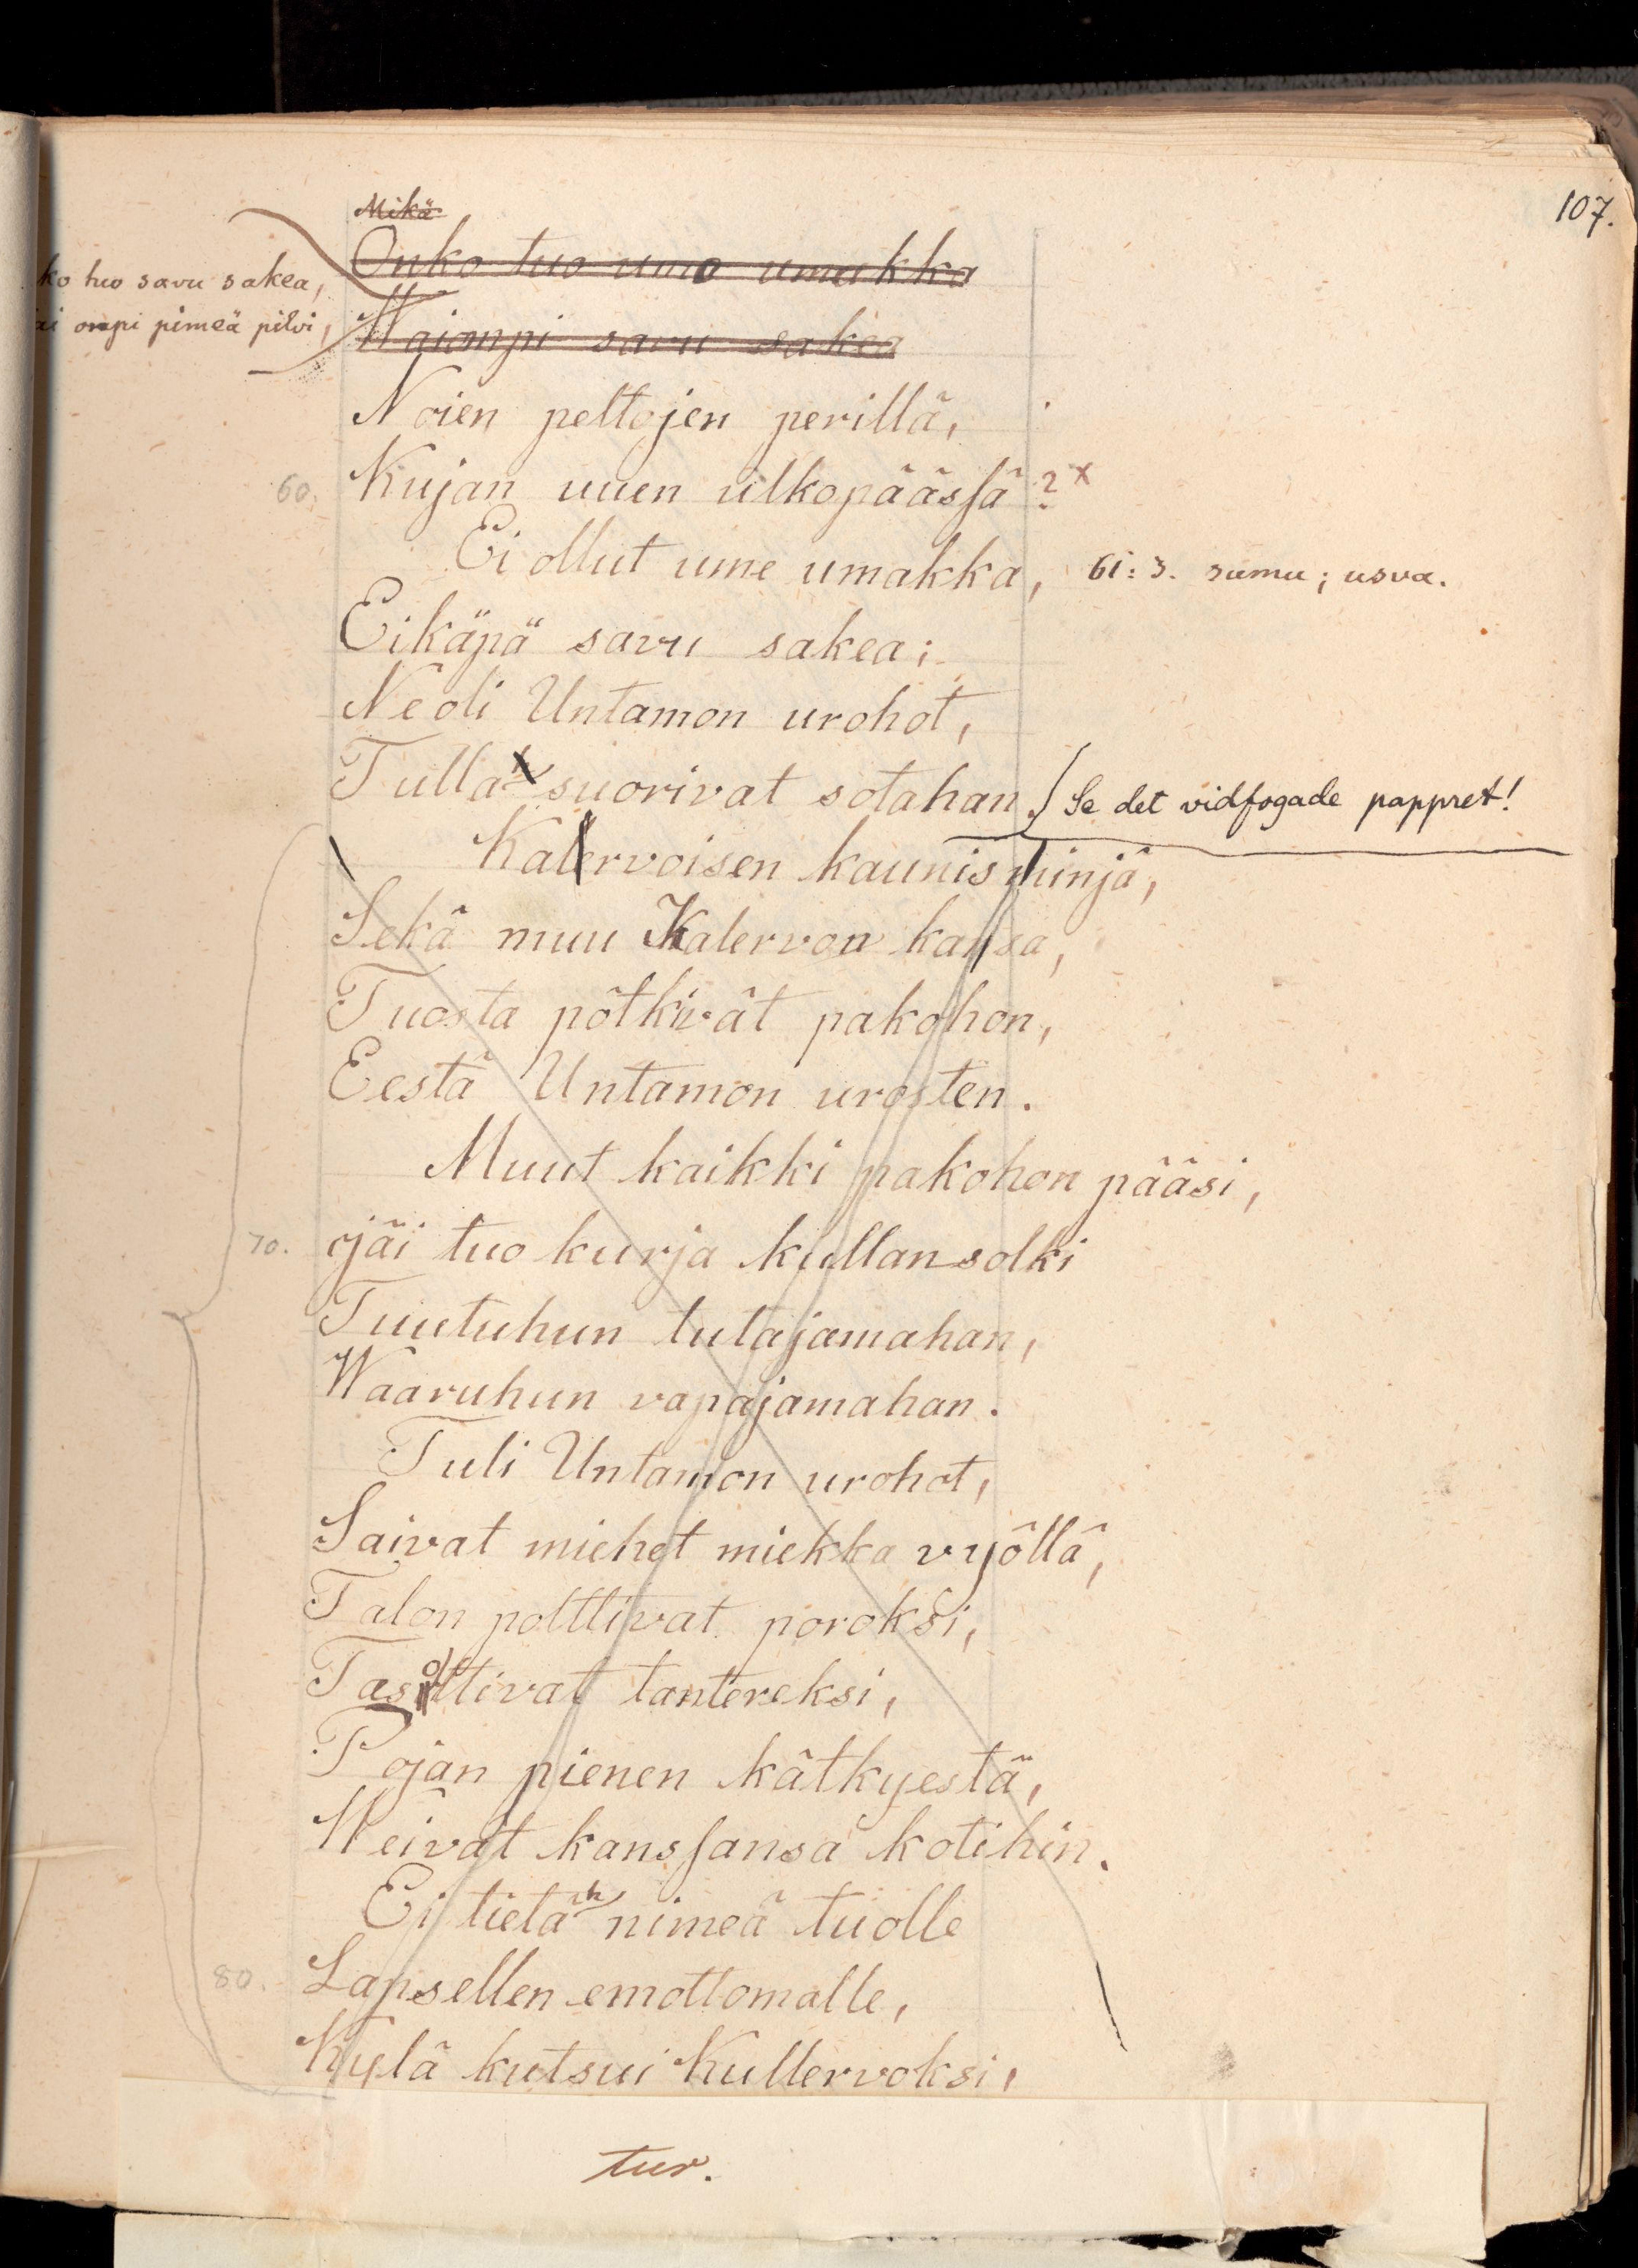 107.
Mikä
Onko tuo umo umakka
ko tuo savu sakea,
Waiompi savu sakea
ompi pimeä pilvi,
Noien peltojen perillä,
60. Kujan uuen ulkopäässä ? x
Ei ollut ume umakka, 61: s. sumu; usva.
Eikäpä savu sakea;
Ne oli Untamon urohot,
Tulla suorivat sotahan. Se det vidfogade pappret!
Kalervoisen kaunis minjä,
Sekä muu Kalervon kansa,
Tuosta pötkivät pakohon,
Eestä Untamon urosten.
Muut kaikki pakohon pääsi,
70. Jäi tuo kurja kullansolki
Tuutuhun tutajamahan,
Waaruhun vapajamahan.
Tuli Untamon urohot,
Saivat miehet miekka vyöllä,
Talon polttivat poroksi,
Tasottivat tantereksi,
Pojan pienen kätkyestä,
Weivät kanssansa kotihin.
Ei tietä h nimeä tuolle
80. Lapsellen emottomalle,
Kylä kutsui Kullervoksi,
tur.